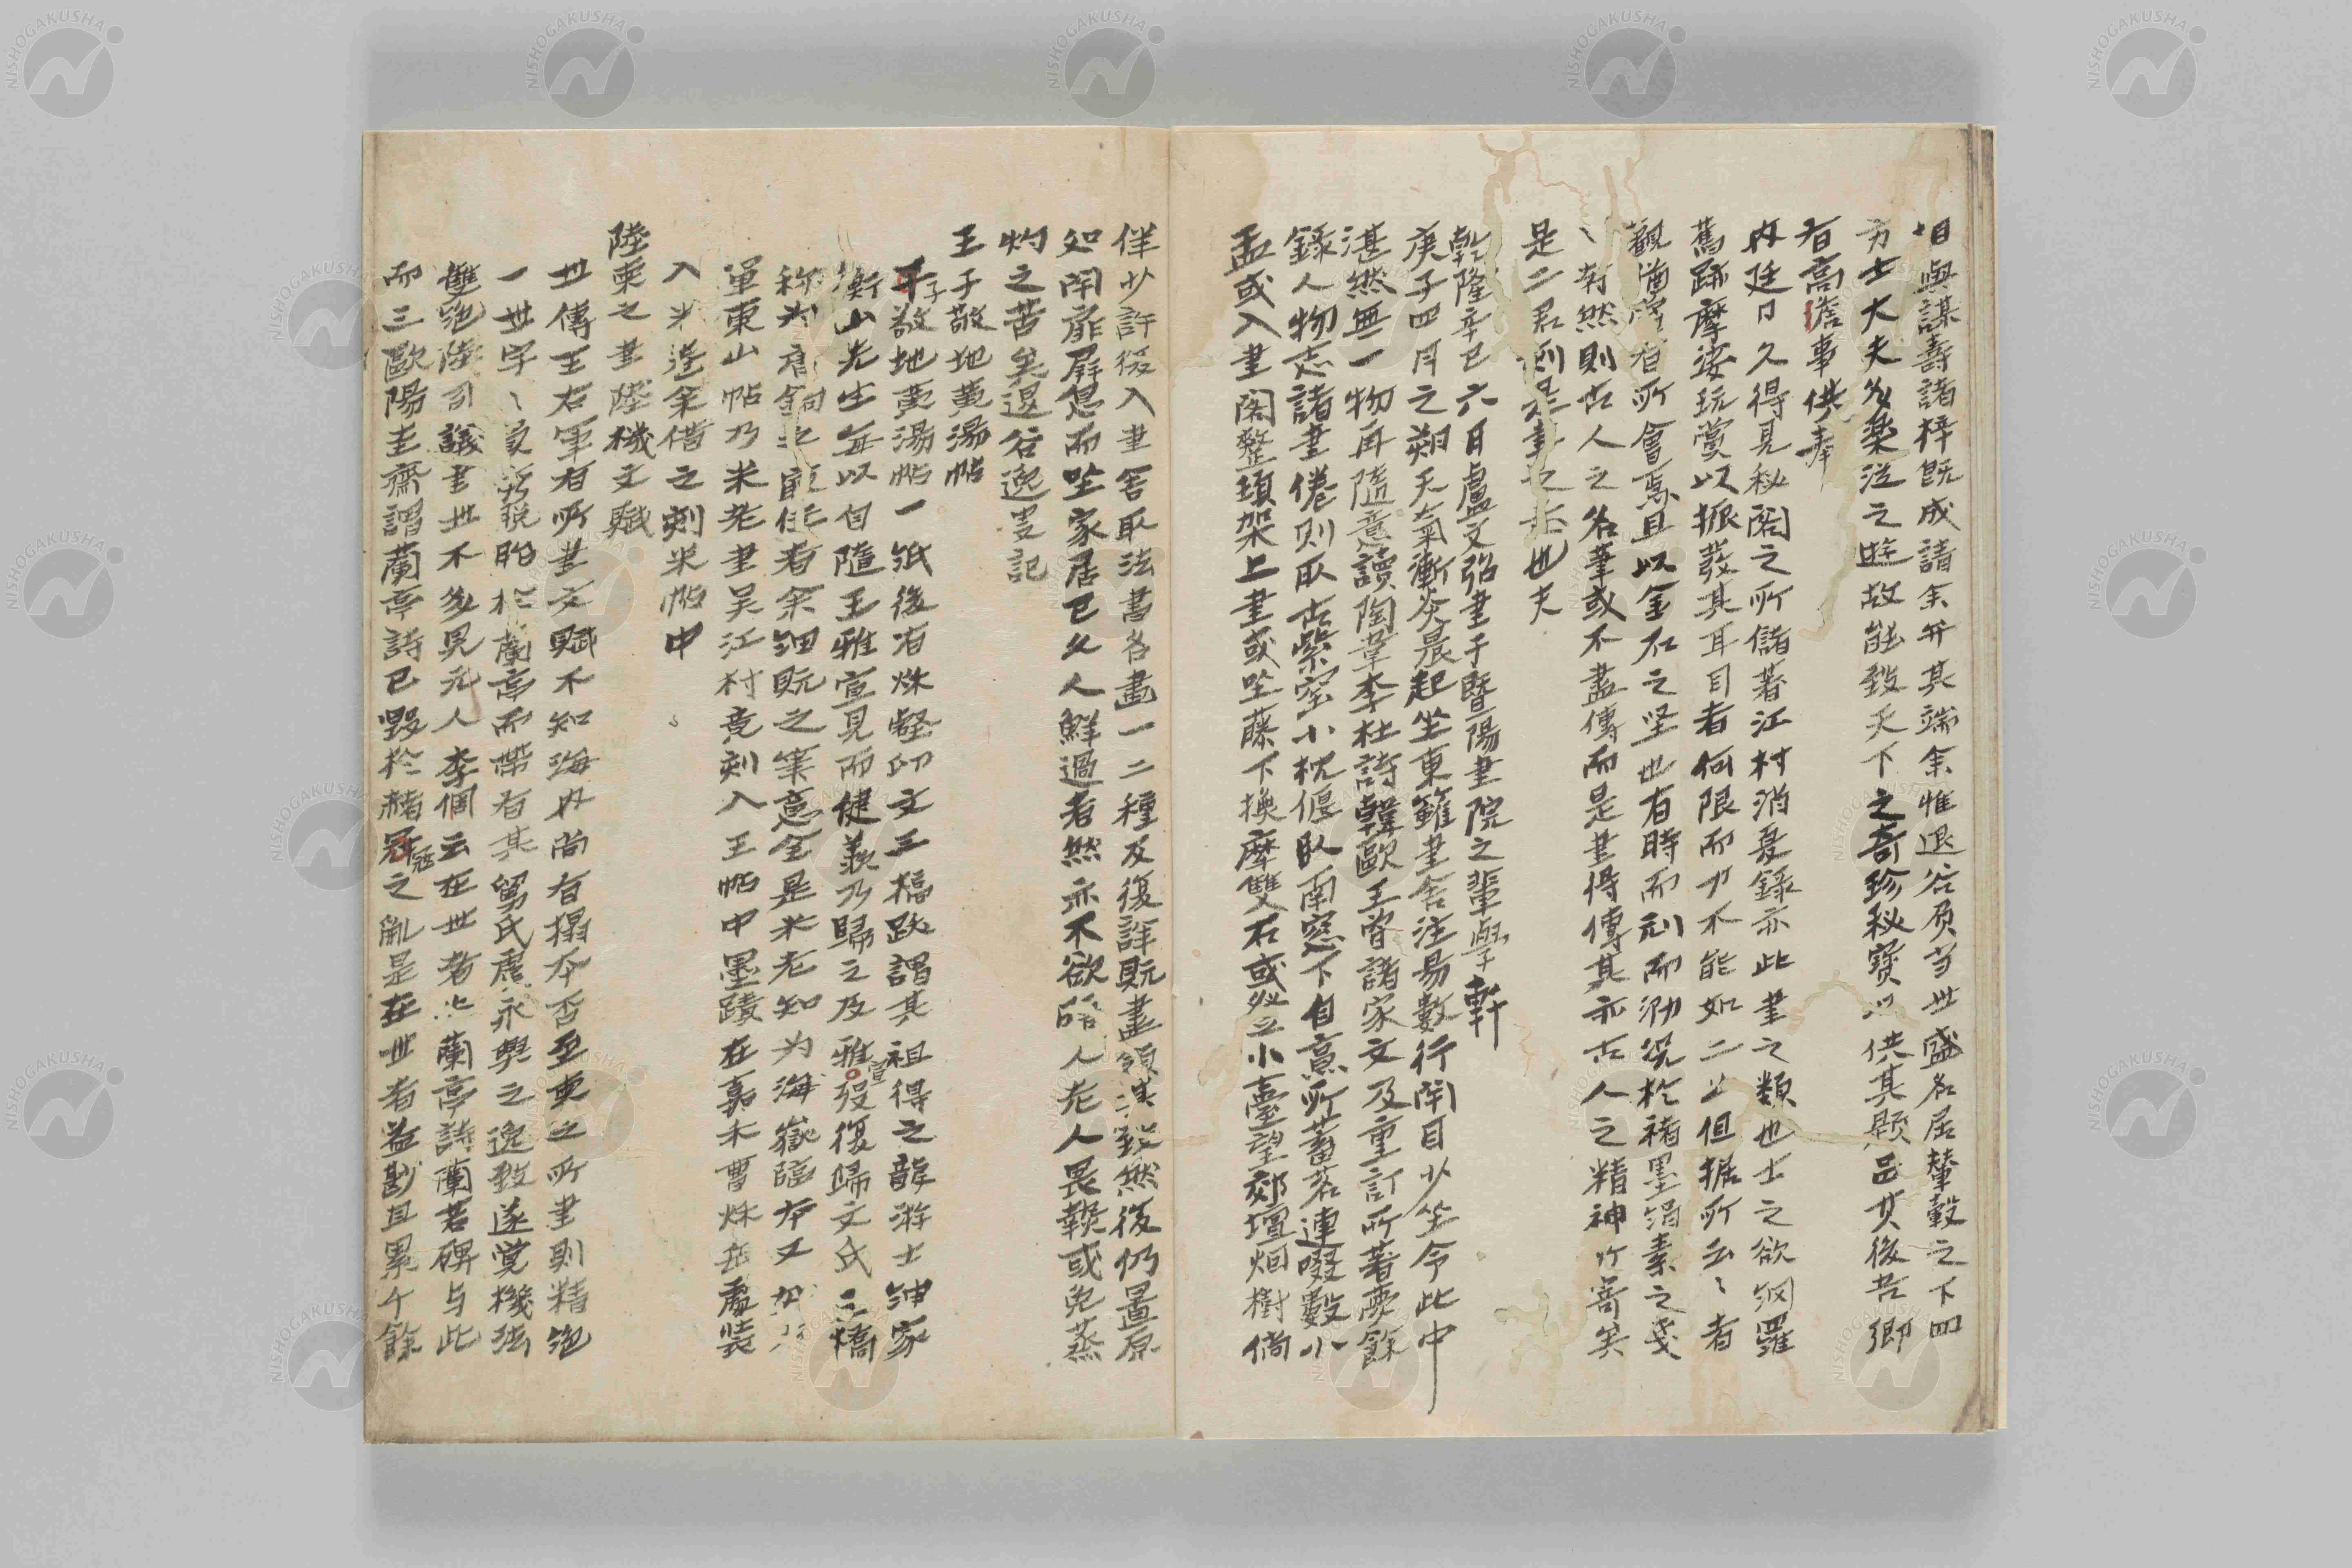 相與謀壽諸梓既成請余弁其端余惟退谷負當世盛名居輦轂之下四
方士大夫多樂從之遊故能致天下之奇珍秘寶以供其題品其後吾鄉
有高詹事供奉
內廷日久得見秘閣之所儲著江村消夏錄亦此書之類也士之欲網羅
舊跡摩挲玩賞以振發其耳目者何限而力不能如二公但据所云〻者
觀猶望有所會焉且以金石之堅也有時而刓而泐況於褚墨絹素之戔
〻者然則古人之名筆或不盡傳而是書得傳其亦古人之精神所寄矣
是二君刻是書之志也夫
乾隆辛巳六月盧文弨書于暨陽書院之輩學軒
庚子四月之朔天氣漸炎晨起坐東籬書舍注易數行閉目少坐令此中
湛然無一物再隨意讀陶韋李杜詩韓歐王曾諸家文及重訂所著夢餘
錄人物志諸書倦則取古柴窑小枕偃臥南窓下自烹所蓄茗連啜數小
盂或入書閣整頓架上書或坐藤下撫摩雙石或登小臺望郊壇烟樹倘
徉少許復入書舍取法書名畫一二種反復詳既盡領其致然後仍置原
処閉扉屏息而坐家居已久人鮮過者然亦不欲晤人老人畏熱或免蒸
灼之苦矣退谷逸叟記
王子敬地黃湯帖
子敬地黃湯帖一紙後有秋壑印文三橋跋謂其祖得之龍游士紳家
衡山先生每以自隨王雅宜見而健羨乃歸之及雅宜沒復歸文氏三橋
單東山帖乃米老書吳江村竟刻入王帖中墨蹟在嘉禾曹秋岳處裝
陸柬之書陸機文賦
世傳王右軍有所書文賦不知海內尚有搨本否至柬之所書則精絕
而帶有其舅氏虞永興之逸致遂覺機法
雙絕陸司議書世不多見元人李倜云在世者止蘭亭詩蘭若碑与此
而三歐陽圭齋謂蘭亭詩已毀於赭寇之亂是在世者益尠且累千餘